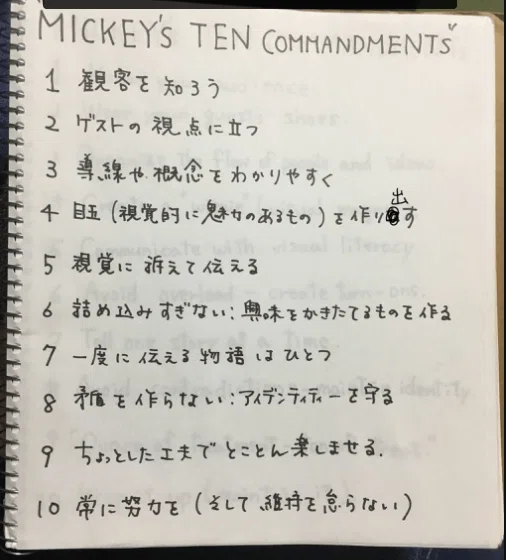 MICKEY'S TEN COMMANDMENTS
1 観客を知ろう
2 ゲストの視点に立つ
3 導線や概念をわかりやすく
4 目玉(視覚的に魅力のあるもの)を作り出す
5 視覚に訴えて伝える
6 詰め込みすぎない:興味をかきたてるものを作る
7 一度に伝える物語はひとつ
8 矛盾を作らない:アイデンティティーを守る
9 ちょっとした工夫でとことん楽しませる.
10 常に努力を(そして維持を怠らない)